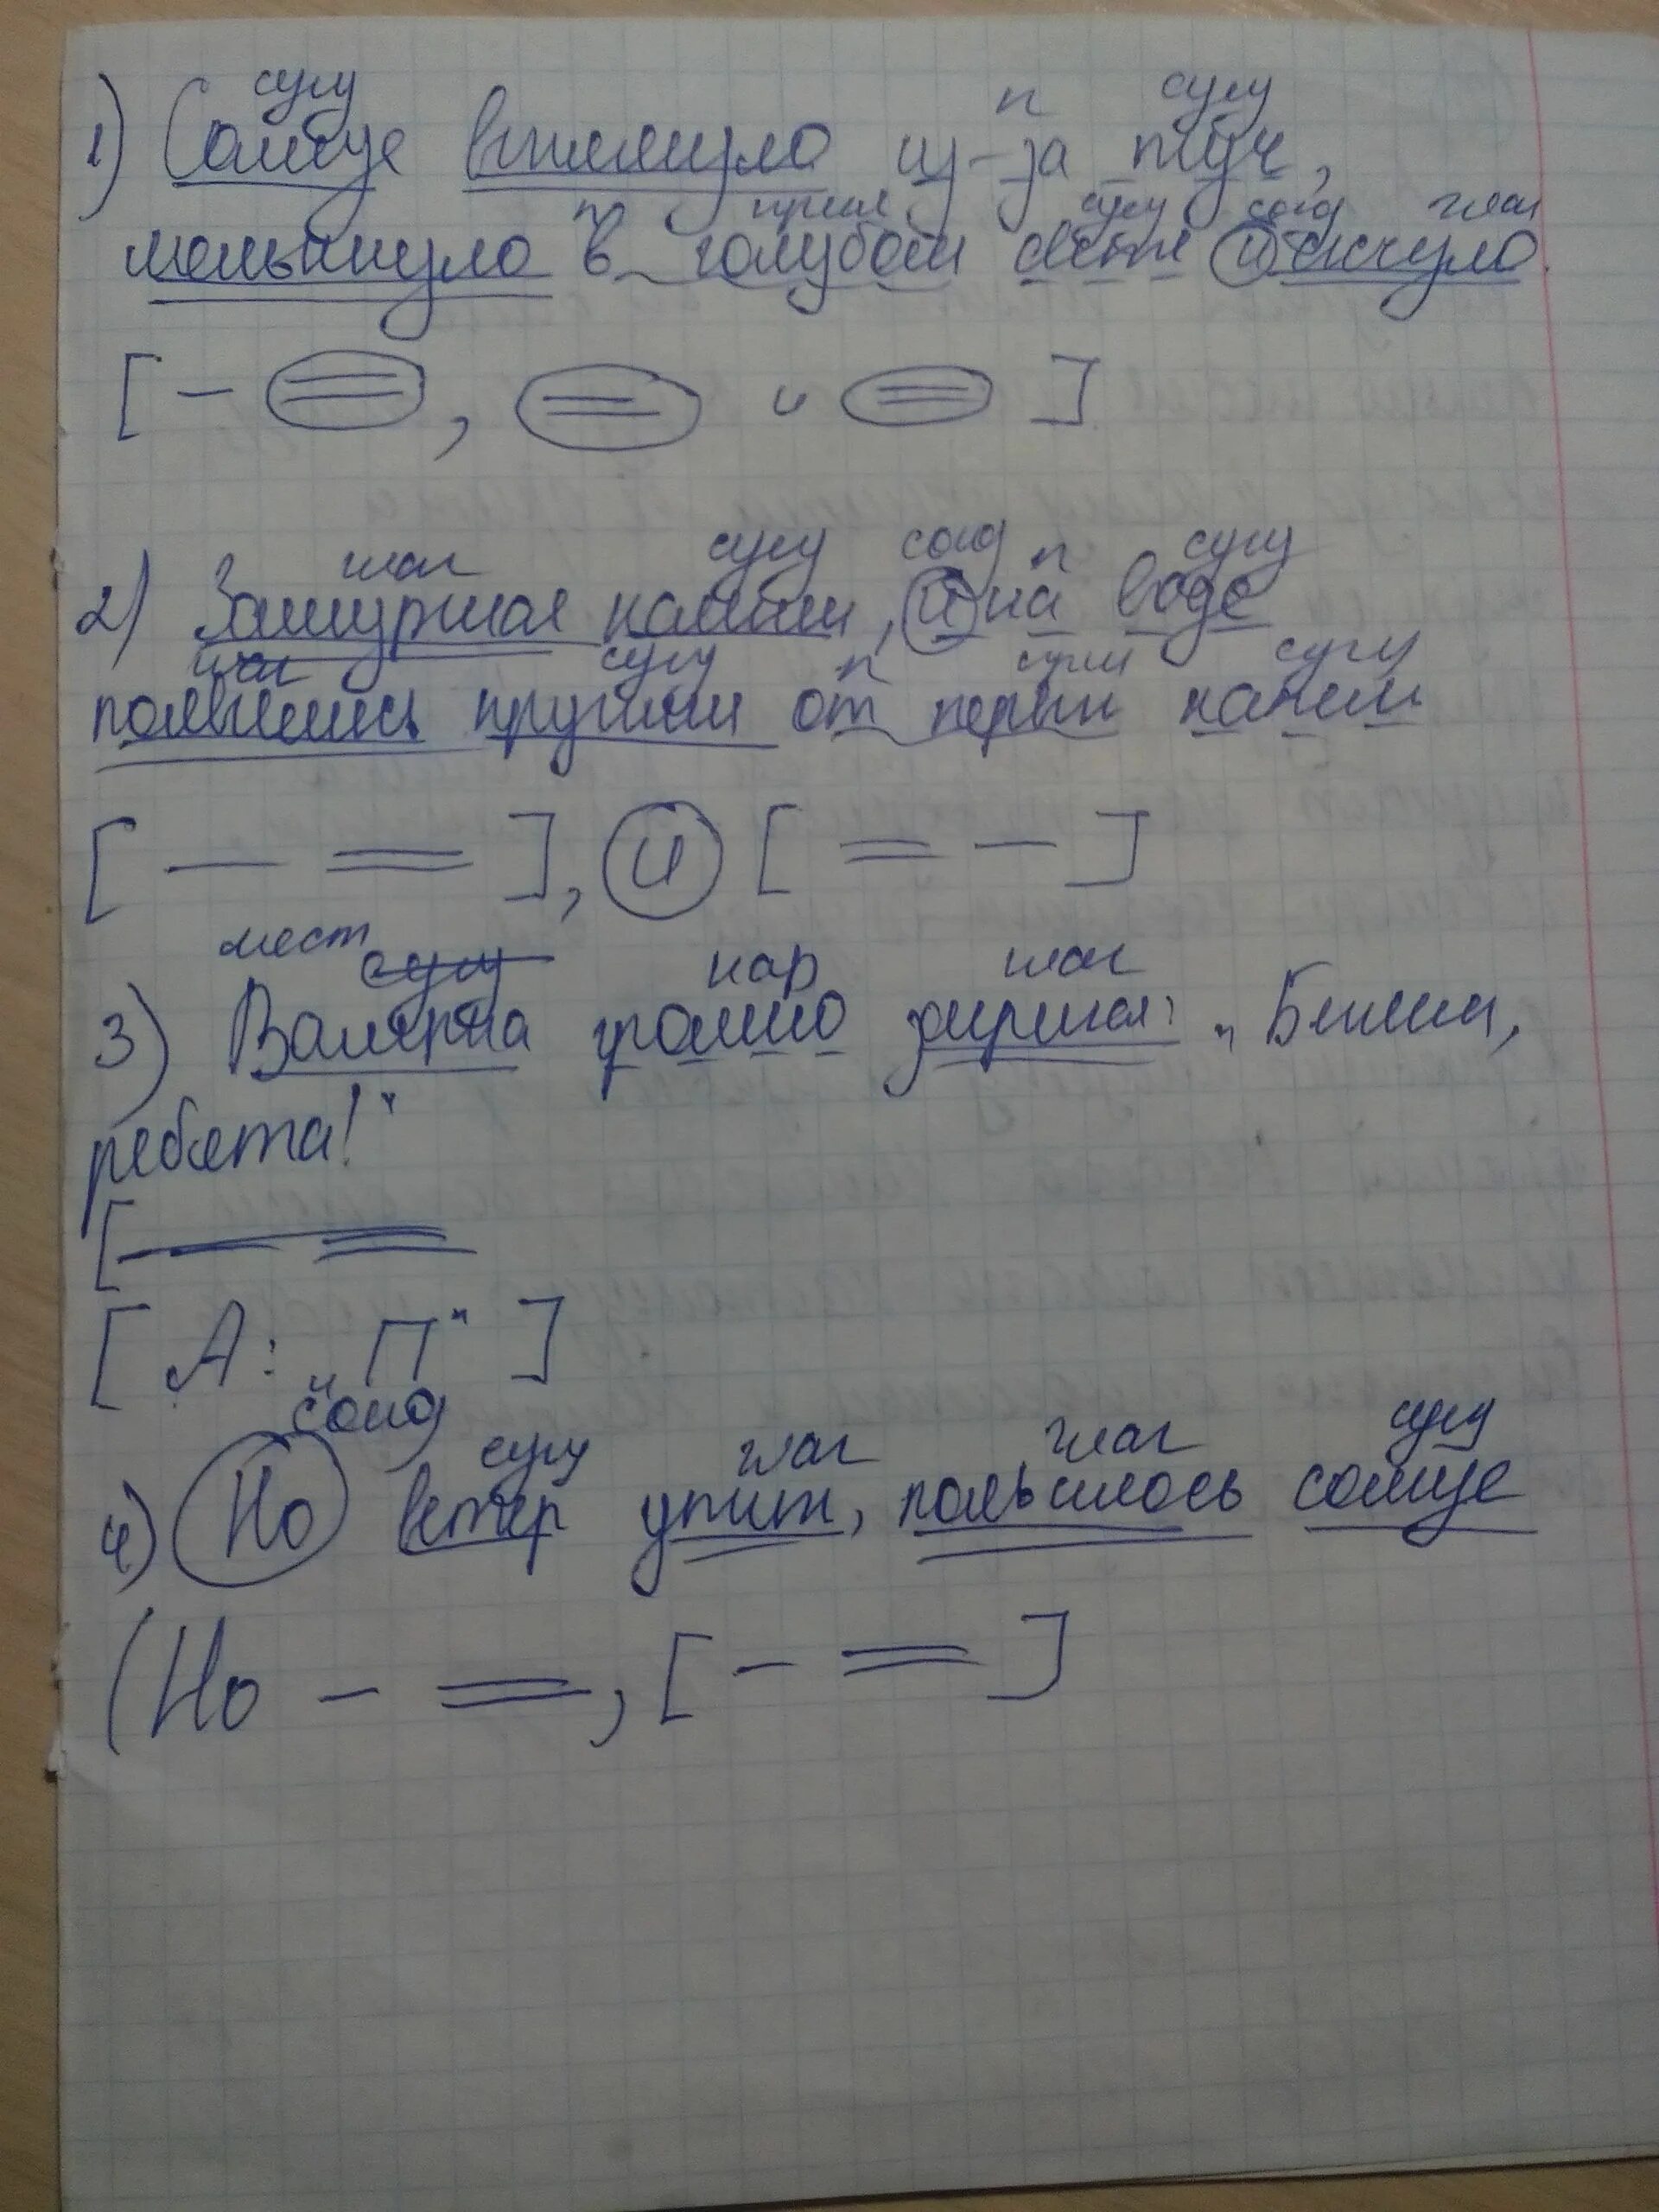 сущ п сущ
1) Солнце выглянуло из-за туч,
п прил сущ союз глаг
мелькнуло в голубом свете и
[ - = , = и = ]
глаг сущ союз п сущ
2) Зашуршал камыш, и на воде
глаг сущ п сущ
появились кружки от первых капель
[ — = ], и [ = — ]
мест сущ нар глаг
3) Валерка громко "Бежим,
ребята!"
[ — =
[ А: „П" ]
союз сущ глаг глаг сущ
4) Но ветер утит, появилось солнце
(Но - = , [ - = ]